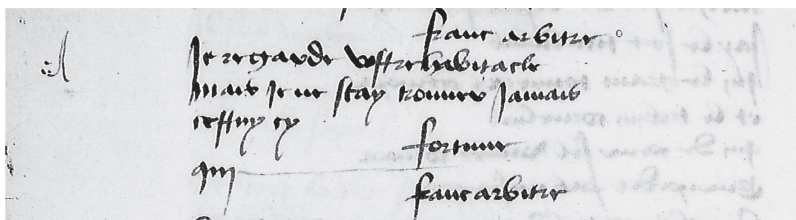 franc arbitre
Je regarde vostre habitacle
mais Je ne scay trouver Jamais
cestuy cy
fortune
qui
franc arbitre